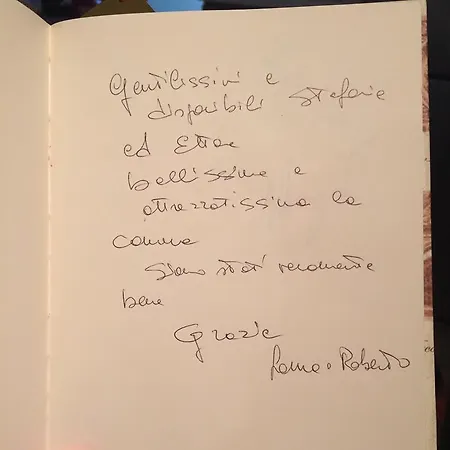 Gentilissimi e
disponibili Stefania
ed Ettore
bellissima e
attrezzatissima la
camera
Siamo stati veramente
bene
Grazie
e Roberto